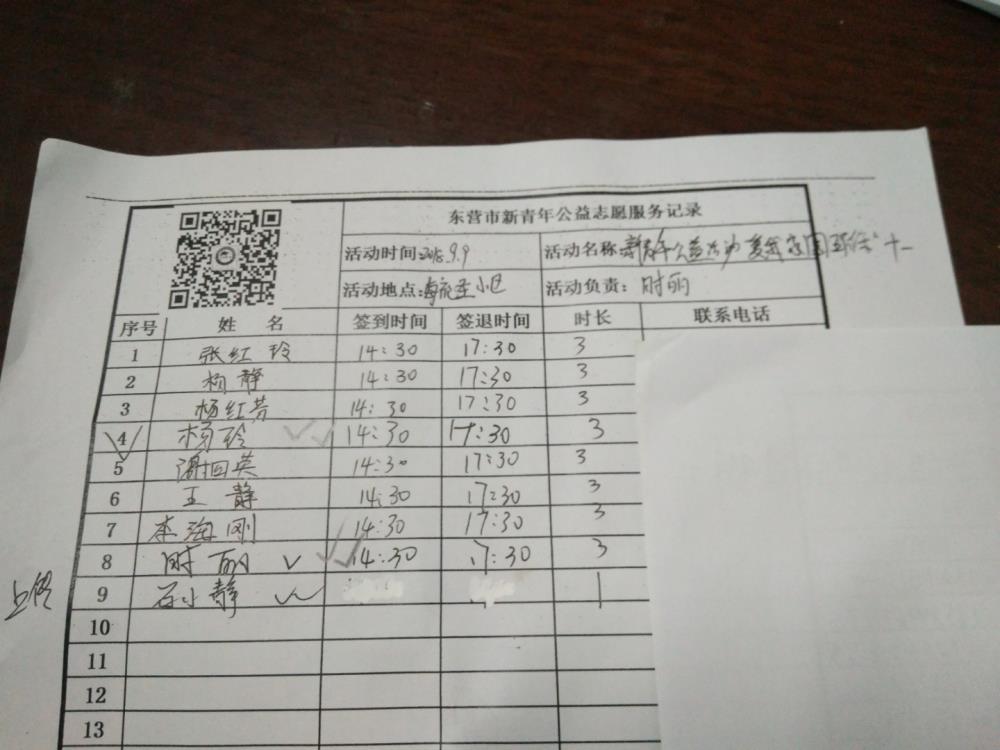 东营市新青年公益志愿服务记录
活动时间:2018.9.9 活动名称:新青年公益 家园环保 十一
活动地点: 小区 活动负责: 时丽
序号 姓 名 签到时间 签退时间 时长 联系电话
1 张红玲 14:30 17:30 3
2 杨静 14:30 17:30 3
3 杨红 14:30 17:30 3
4 杨玲 14:30 17:30 3
5 谢回英 14:30 17:30 3
6 王静 14:30 17:30 3
7 李海刚 14:30 17:30 3
8 时丽 14:30 17:30 3
上传 9 石小静 1
10
11
12
13